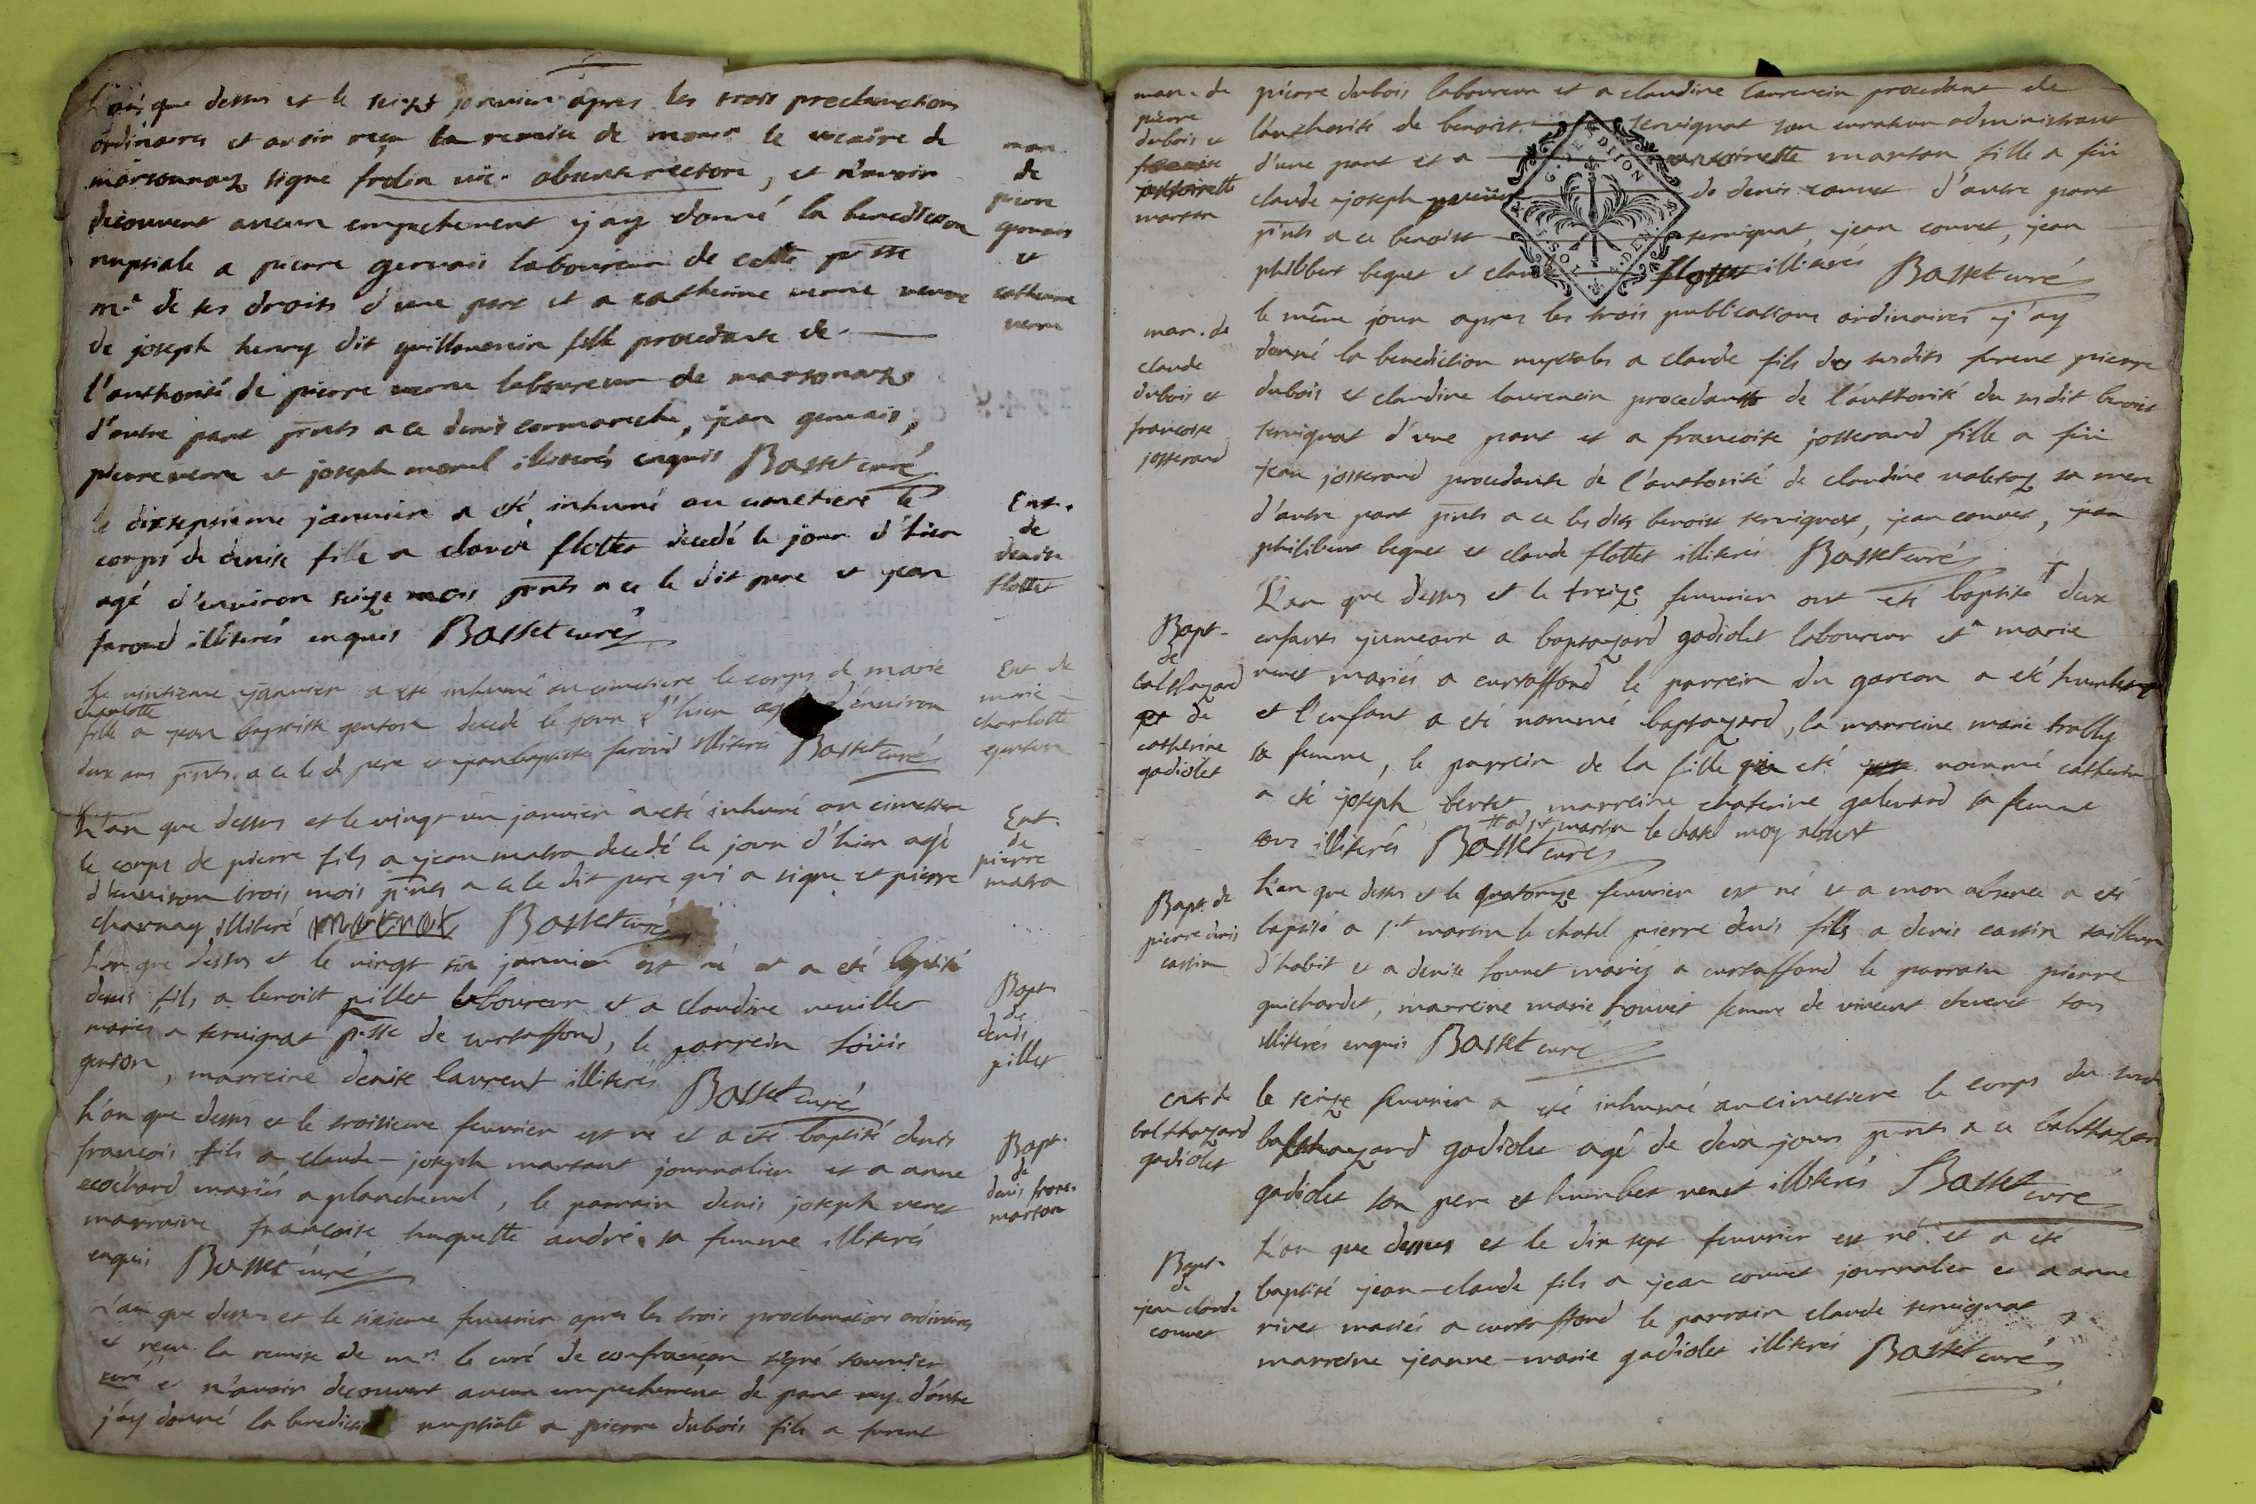 L'an que dessus et le seize janvier apres les trois proclamations
ordinaires et avoir reçu la remise de monsr le vicaire de
marsonnaz signé frolin vic. absente rectore, et n'avoir
decouvert aucun empechement j'ay donné la benediction
nuptiale a pierre gervais laboureur de cette psse
me de ses droits d'une part et a catherine verne veuve
de joseph henry dit guillaumin fille procedante de
l'authorité de pierre verne laboureur de marsonnaz
d'autre part pnts a ce denis cormareche, jean gervais,
pierre verne et joseph morel illiterés enquis Basset curé
man.
de
pierre
gervais
et
catherine
verne
le dixseptieme janvier a eté inhumé au cimetiere le
corps de denise fille a claude flottet decedé le jour d'hier
agé d'environ seize mois pnts a ce le dit pere et jean
farond illiterés enquis Basset curé
Ent.
de
denise
flottet
Le vintieme janvier a eté inhumé au cimetiere le corps de marie
charlotte
fille a jean baptiste genton decedé le jour d'hier agé d'environ
deux ans pnts a ce le d pere et jean baptiste farond illiteré Basset curé
Ent de
marie
charlotte
genton
L'an que dessus et le vingt un janvier a eté inhumé au cimetiere
le corps de pierre fils a jean matra decedé le jour d'hier agé
d'environ trois mois pnts a ce le dit pere qui a signe et pierre
charnay illiteré Basset curé
Ent.
de
pierre
matra
L'an que dessus et le vingt six janvier est né et a eté baptisé
denis fils a benoist pillet laboureur et a claudine veuillet
mariés a servignat psse de curtaffond, le parrein loüis
genton, marreine denise laurent illiterés Basset curé
Bapt
de
denis
pillet
L'an que dessus et le troisieme fevvrier est né et a eté baptisé denis
francois fils a claude-joseph martant journalier et a anne
ecochard mariés a planchemel, le parrain denis joseph venet
marraine francoise huguette andré sa femme illiterés
enquis Basset curé
Bapt.
de
denis franc.
martan
L'an que dessus et le sixieme fevvrier apres les trois proclamations ordinaires
et reçu la remise de mr. le curé de confrançon signé
curé et n'avoir decouvert aucun empechement de part ny d'autre
j'ay donné la benediction nuptiale a pierre dubois fils a furent
mar. de
pierre
dubois et
antoinette
martan
pierre dubois laboureur et a claudine laurencin procedant de
l'authorité de benoist servignat son curateur administrant
d'une part et a antoinette martan fille a feu
claude joseph de denis couvet d'autre part
pnts a ce benoist servignat, jean couvet, jean
philibert bequet et claude flottet illiterés Basset curé
G. DE DIJON
mar. de
claude
dubois et
francoise
josserand
le même jour apres les trois publications ordinaires j'ay
donné la benediction nuptiale a claude fils des susdits furent pierre
dubois et claudine laurencin procedant de l'authorité du susdit benoist
servignat d'une part et a francoise josserand fille a feu
jean josserand procedante de l'authorité de claudine valetoz sa mere
d'autre part pnts a ce les dits benoist servignat, jean couvet, jean
philibert bequet et claude flottet illiterés Basset curé
Bapt.
de
balthazard
et de
catherine
gadiolet
L'an que dessus et le treize fevvrier ont eté baptisé deux
enfants jumeaux a baptazard gadiolet laboureur et a marie
venet mariés a curtaffond le parrein du garcon a eté humbert
et l'enfant a eté nommé baptazard, la marreine marie trolly
sa femme, le parrein de la fille qui eté nommé catherine
a eté joseph bertet, marreine chaterine galevard sa femme
tous illiterés Basset curé
a st martin le chatel moy absent
Bapt. de
pierre denis
cassin
L'an que dessus et le quatorze fevvrier est né et a mon absence a eté
baptisé a st martin le chatel pierre denis fils a denis cassin tailleur
d'habit et a denise louvet mariés a curtaffond le parrain pierre
guichardet, marreine marie louvet femme de vincent chevenet tous
illiterés enquis Basset curé
ent de
balthazard
gadiolet
le seize fevvrier a eté inhumé au cimetiere le corps du susd
balthazard gadiolet agé de deux jours pnts a ce balthazar
gadiolet son pere et humbert venet illiterés Basset curé
Bapt.
de
jean claude
couvet
L'an que dessus et le dix sept fevvrier est né et a eté
baptisé jean-claude fils a jean couvet journalier et a anne
rivet mariés a curtaffond le parrain claude servignat,
marreine jeanne-marie gadiolet illiterés Basset curé